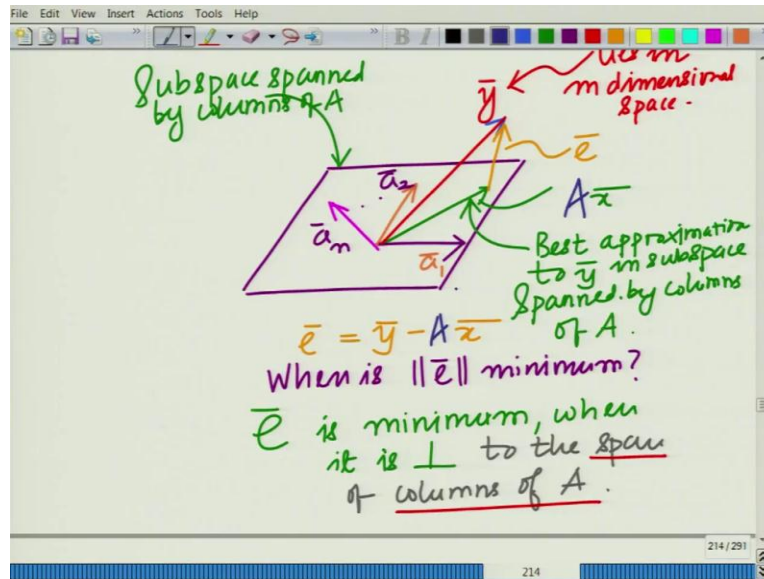 File Edit View Insert Actions Tools Help
B I
Subspace spanned
by columns of A
lies in
m dimensional
space.
ȳ
ē
ā₂
A x̄
āₙ
ā₁
Best approximation
to ȳ in subspace
spanned by columns
of A.
ē = ȳ - A x̄
When is ||ē|| minimum?
ē is minimum, when
it is ⊥ to the span
of columns of A.
214/291
214